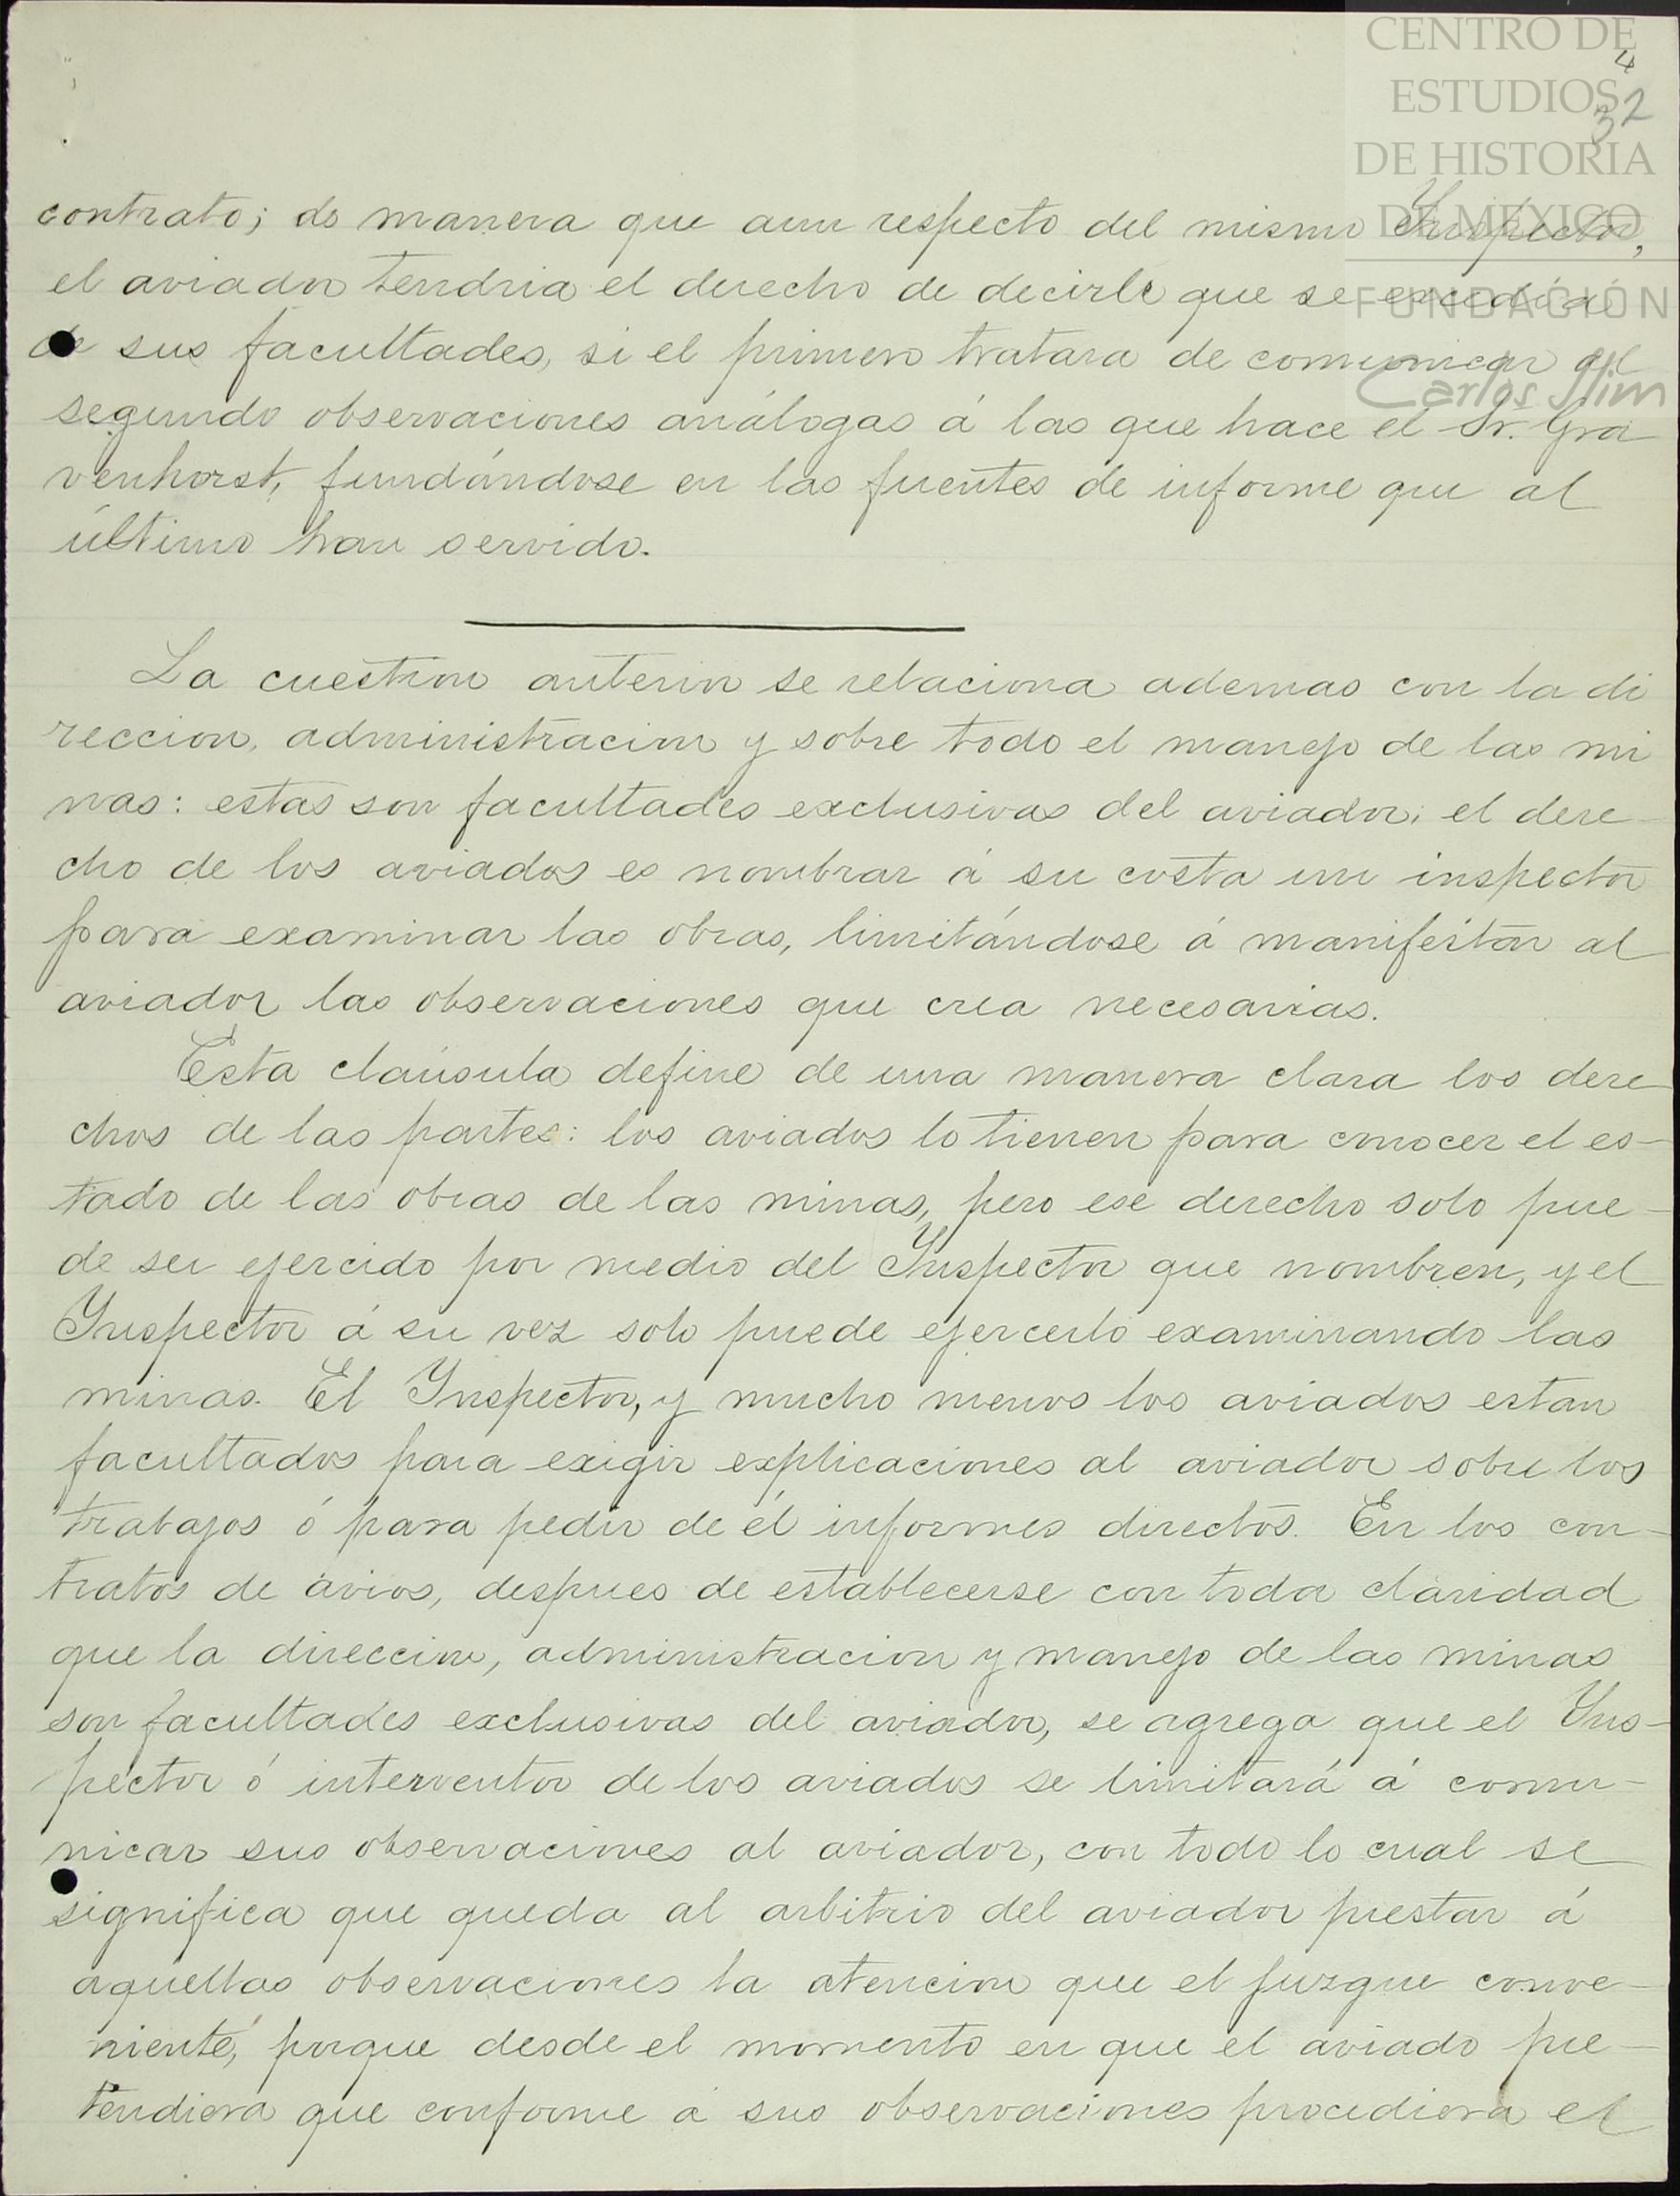 CENTRO DE
ESTUDIOS
DE HISTORIA
DE MÉXICO
FUNDACIÓN
Carlos Slim
4
32
contrato; de manera que aun respecto del mismo Inspector,
el aviador tendria el derecho de decirle que se excedia
de sus facultades, si el primero tratara de comunicar al
segundo observaciones análogas á las que hace el Sr. Gra
venhorst, fundándose en las fuentes de informe que al
último han servido.
La cuestion anterior se relaciona ademas con la di
reccion, administracion y sobre todo el manejo de las mi
nas: estas son facultades exclusivas del aviador; el dere-
cho de los aviados es nombrar á su costa un inspector
para examinar las obras, limitándose á manifestar al
aviador las observaciones que crea necesarias.
Esta claúsula define de una manera clara los dere-
chos de las partes: los aviados lo tienen para conocer el es-
tado de las obras de las minas, pero ese derecho solo pue-
de ser ejercido por medio del Inspector que nombren, y el
Inspector á su vez solo puede ejercerlo examinando las
minas. El Inspector, y mucho menos los aviados estan
facultados para exigir explicaciones al aviador sobre los
trabajos ó para pedir de él informes directos. En los con-
tratos de avios, despues de establecerse con toda claridad
que la direccion, administracion y manejo de las minas
son facultades exclusivas del aviador, se agrega que el Ins-
pector ó interventor de los aviados se limitará á comu-
nicar sus observaciones al aviador, con todo lo cual se
significa que queda al arbitrio del aviador prestar á
aquellas observaciones la atencion que el juzgue conve-
niente, porque desde el momento en que el aviado pre-
tendiera que conforme á sus observaciones procediera el